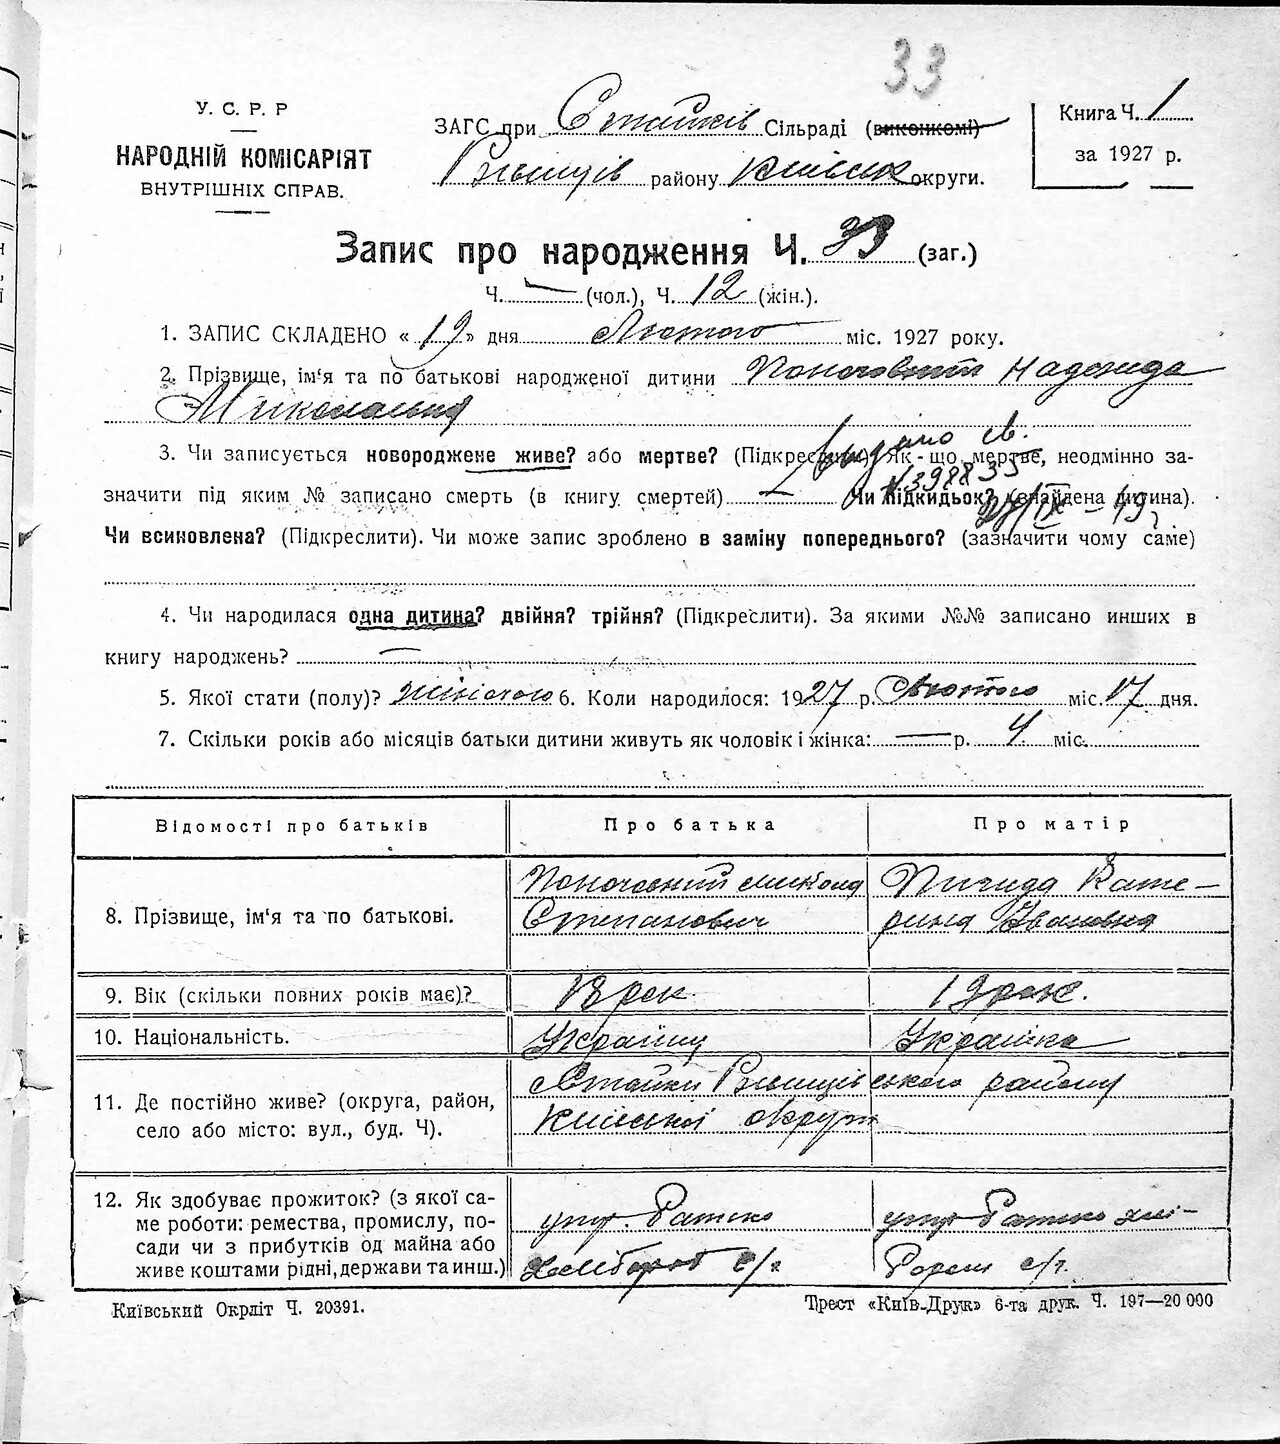 33
У. С. Р. Р
НАРОДНІЙ КОМІСАРІЯТ
ВНУТРІШНІХ СПРАВ.
ЗАГС при Стайків Сільраді (виконкомі)
Ржищів району Київськ округи.
Книга Ч. 1
за 1927 р.
Запис про народження Ч. 33 (заг.)
Ч. — (чол.), Ч. 12 (жін.).
1. ЗАПИС СКЛАДЕНО « 19 » дня Лютого міс. 1927 року.
2. Прізвище, ім‘я та по батькові народженої дитини Надежда
Миколаевна
3. Чи записується новороджене живе? або мертве? (Підкреслити) Як-що мертве, неодмінно за-
видано св.
№398835
значити під яким № записано смерть (в книгу смертей) — Чи підкидьок? (знайдена дитина).
27/IX – 49 г
Чи всиновлена? (Підкреслити). Чи може запис зроблено в заміну попереднього? (зазначити чому саме)
4. Чи народилася одна дитина? двійня? трійня? (Підкреслити). За якими №№ записано инших в
книгу народжень? —
5. Якої стати (полу)? жіночого 6. Коли народилося: 1927 р. Лютого міс. 17 дня.
7. Скільки років або місяців батьки дитини живуть як чоловік і жінка: — р. 4 міс.
Відомості про батьків Про батька Про матір
8. Прізвище, ім‘я та по батькові.
Микола Кате-
Степанович рина Ивановна
9. Вік (скільки повних років має)? 18 рок 19 рок.
10. Національність. Украйнц Украйнка
11. Де постійно живе? (округа, район,
село або місто: вул., буд. Ч).
Стайки Ржищівського району
Київської округи
12. Як здобуває прожиток? (з якої са-
ме роботи: ремества, промислу, по-
сади чи з прибутків од майна або
живе коштами рідні, держави та инш.)
утр. Батько утр Батько хлі-
хлібороб с/г бороб с/г.
Київський Окрліт Ч. 20391.
Трест «Київ-Друк» 6-та друк. Ч. 197—20 000